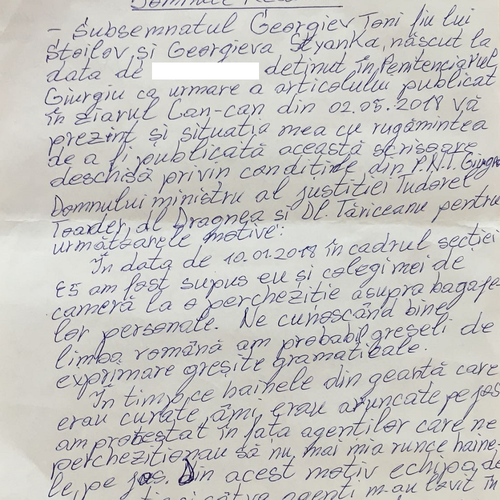 Domnule
- Subsemnatul Georgiev Toni fiu lui
Stoilov și Georgieva Styanka, născut la
data de deținut în Penitenciarul
Giurgiu ca urmare a articolului publicat
în ziarul Can-can din 02.05.2018 vă
prezint și situația mea cu rugămintea
de a fi publicată această scrisoare
deschisă privin condițiile din P.N.T. Giurgiu
Domnului ministru al justiției Tudorel
Toader, dl Dragnea și Dl. Tăriceanu pentru
următoarele motive:
În data de 10.01.2018 în cadrul secției
E5 am fost supus eu și colegi mei de
cameră la o percheziție asupra bagaje
lor personale. Ne cunoscând bine
limba română am probabil greșeli de
exprimare greșite gramaticale.
În timp ce hainele din geantă care
erau curate îmi erau aruncate pe jos
am protestat în fața agenților care ne
percheziționau să nu mai mia runce haine-
le pe jos. Din acest motiv echipa de
agenți m-au lovit în